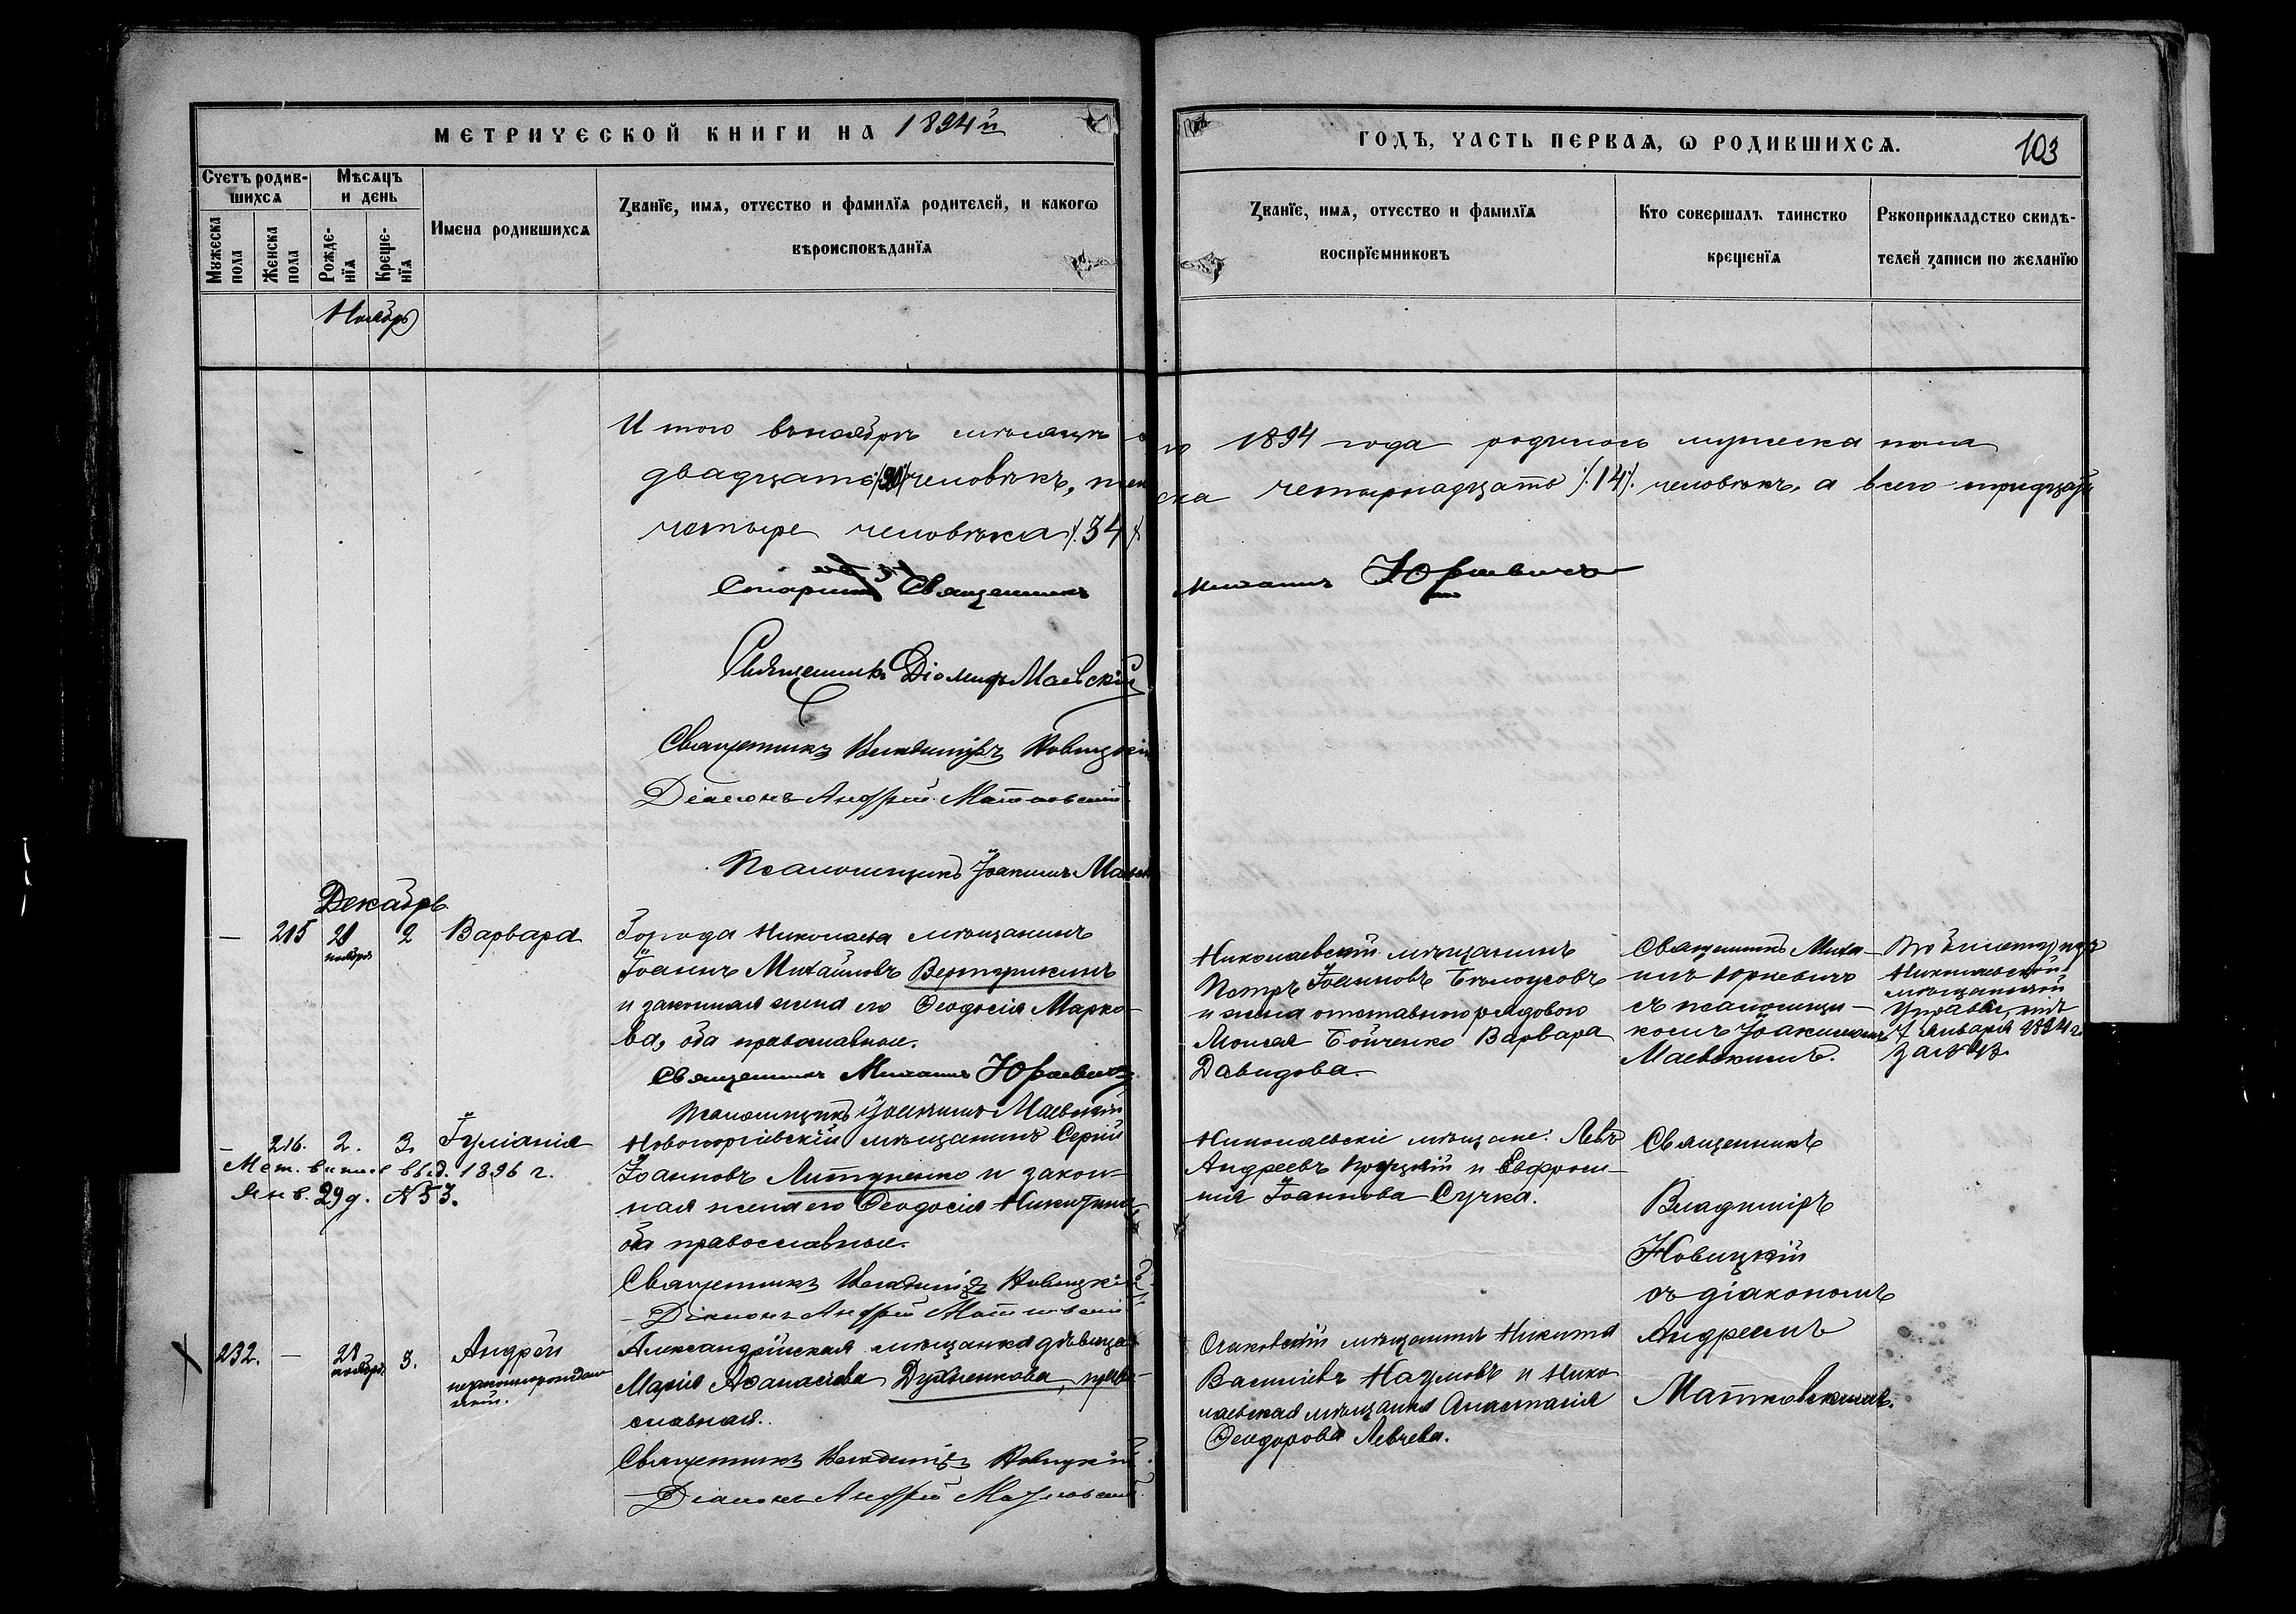 МЕТРИЧЕСКОЙ КНИГИ НА 1894й
ГОДЪ, ЧАСТЬ ПЕРВАЯ, Ѡ РОДИВШИХСЯ.
103
Счетъ родив-
шихся
Мѣсяцъ
и день
Мужеска
пола
Женска
пола
Рожде-
нїя
Креще-
нїя
Имена родившихся
Званїе, имя, отчество и фамилїя родителей, и какогѡ
вѣроисповѣданїя
Званїе, имя, отчество и фамилїя
воспрїемниковъ
Кто совершалъ таинство
крещенїя
Рукоприкладство свидѣ-
телей записи по желанїю
Ноябрь
Итого въ ноябрѣ мѣсяцѣ 1894 года родилось мужеска пола
двадцать /:20:/ человѣкъ, женска четырнадцать /:14:/ человѣкъ, а всего тридцать
четыре человѣка /:34:/
Священникъ Михаилъ Юркевичъ
Священникъ Діомидъ Маевскій
Священникъ Владиміръ Новицкій
Діаконъ Андрей Матковскій
Псаломщикъ Іоакимъ Маевскій
Декабрь
—
215
ноября
2
Варвара
Города Николаева мѣщанинъ
Іоаннъ Михайловъ Вертушкинъ
и законная жена его Ѳеодосія Марко-
ва, оба православные.
Священникъ Михаилъ Юркевичъ
Псаломщикъ Іоакимъ Маевскій
Николаевскій мѣщанинъ
Петръ Іоанновъ Бѣлоусовъ
и жена отставного рядового
Моисея Бойченко Варвара
Давидова
Священникъ Миха-
илъ Юркевичъ
съ псаломщи-
комъ Іоакимомъ
Маевскимъ.
Николаевской
мѣщанской
Управы, отъ
7 Января 1894 г.
за №
—
216.
2.
3.
Іуліанія
Мет. выпись выд. 1896 г.
Янв. 29 д. № 53.
Новогеоргіевскій мѣщанинъ Сергій
Іоанновъ Литвиненко и закон-
ная жена его Ѳеодосія Никитина
оба православные.
Священникъ Владиміръ Новицкій
Діаконъ Андрей Матковскій
Николаевскіе мѣщане: Левъ
Андреевъ и Евфроси-
нія Іоаннова Сучка.
Священникъ
Владиміръ
Новицкій
съ діакономъ
Андреемъ
Матковскимъ.
232.
—
28
ноября
3.
Андрей
незаконнорожден-
ный.
Александрійская мѣщанка дѣвица
Марія Аѳанасіева Духненкова, право-
славная.
Священникъ Владиміръ Новицкій
Діаконъ Андрей Матковскій
Очаковскій мѣщанинъ Никита
Василіевъ Наумовъ и Нико-
лаевская мѣщанка Анастасія
Ѳеодорова Левчева.